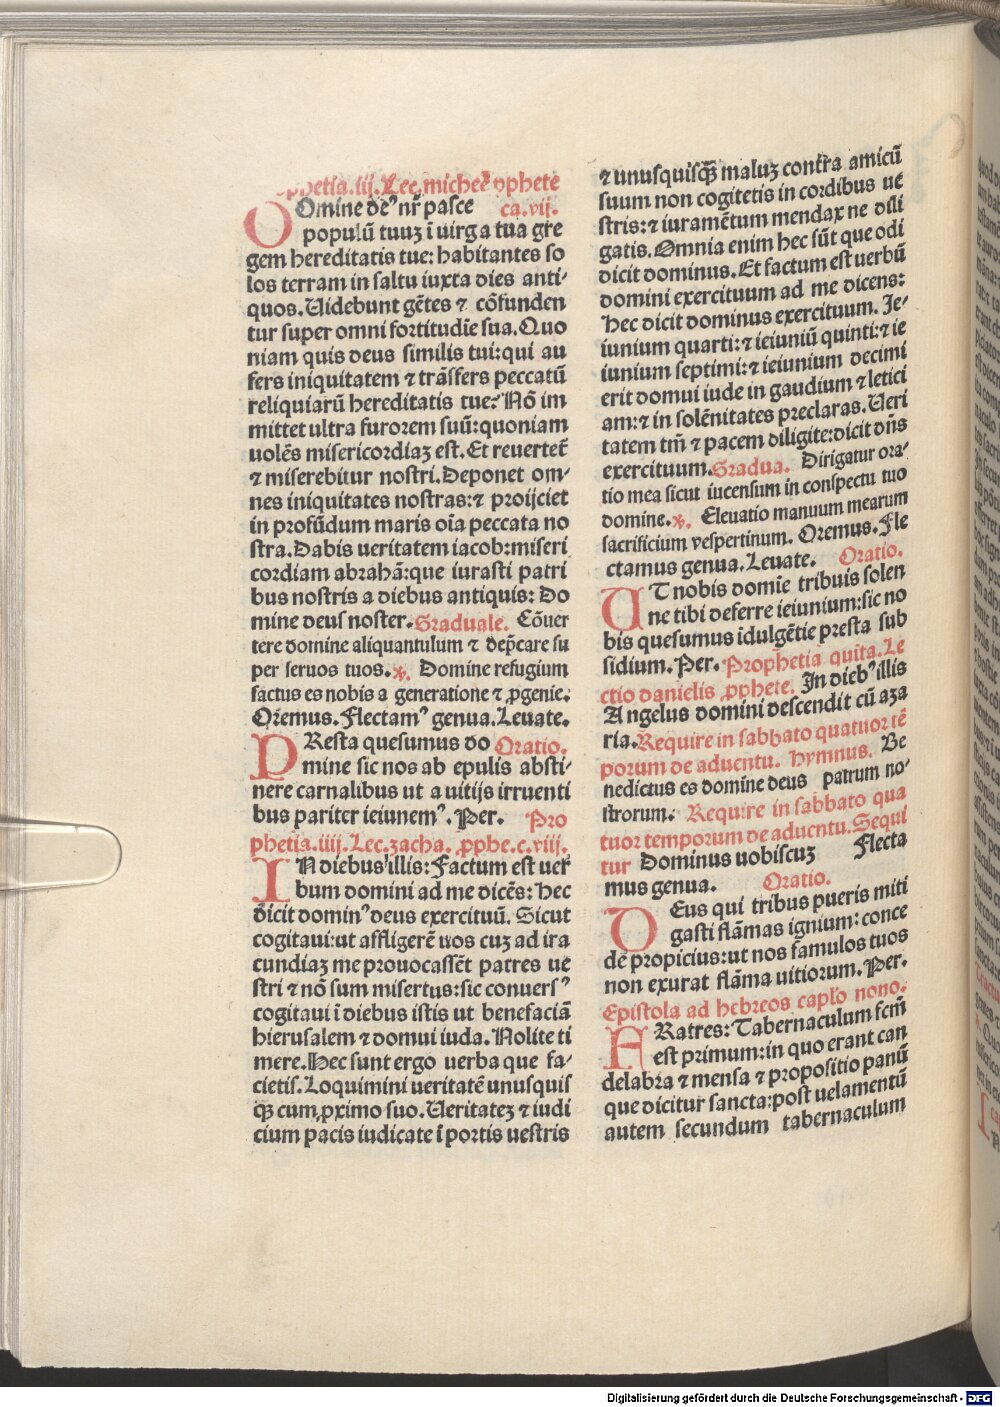 phetia.iij.Lec.micheẽ ꝓphete
DOmine deꝰ nr̃ pasce ca.vij.
populũ tuuꝫ ĩ uirga tua gre
gem hereditatis tue: habitantes so
los terram in saltu iuxta dies anti-
quos. Uidebunt gẽtes ⁊ cõfunden
tur super omni fortitudĩe sua. Quo
niam quis deus similis tui: qui au
fers iniquitatem ⁊ trãsfers peccatũ
reliquiarũ hereditatis tue? Nõ im
mittet ultra furorem suũ: quoniam
uolẽs misericordiaꝫ est. Et reuertet̃
⁊ miserebitur nostri. Deponet om-
nes iniquitates nostras: ⁊ proijciet
in profũdum maris oĩa peccata no
stra. Dabis ueritatem iacob: miseri
cordiam abrahã: que iurasti patri
bus nostris a diebus antiquis: Do
mine deus noster. Graduale. Cõuer
tere domine aliquantulum ⁊ dep̃care su
per seruos tuos. ℣. Domine refugium
factus es nobis a generatione ⁊ ꝓgenie.
Orẽmus. Flectamꝰ genua. Leuate.
PResta quesumus do Oratio.
mine sic nos ab epulis absti-
nere carnalibus ut a uitijs irruenti
bus pariter ieiunemꝰ. Per. Pro
phetia.iiij.Lec.zacha. ꝓphe.c.viij.
IN diebus illis: Factum est uer
bum domini ad me dicẽs: hec
dicit dominꝰ deus exercituũ. Sicut
cogitaui: ut affligerẽ uos cuꝫ ad ira
cundiaꝫ me prouocassẽt patres ue
stri ⁊ nõ sum misertus: sic conuersꝰ
cogitaui ĩ diebus istis ut benefaciã
hierusalem ⁊ domui iuda. Nolite ti
mere. Hec sunt ergo uerba que fa-
cietis. Loquimini ueritatẽ unusquis
qꝫ cum ꝓximo suo. Ueritateꝫ ⁊ iudi
cium pacis iudicate ĩ portis uestris
⁊ unusquisqꝫ maluꝫ contra amicũ
suum non cogitetis in cordibus ue
stris: ⁊ iuramẽtum mendax ne dili
gatis. Omnia enim hec sũt que odi
dicit dominus. Et factum est uerbũ
domini exercituum ad me dicens:
Hec dicit dominus exercituum. Ie-
iunium quarti: ⁊ ieiuniũ quinti: ⁊ ie
iunium septimi: ⁊ ieiunium decimi
erit domui iude in gaudium ⁊ letici
am: ⁊ in solẽnitates preclaras. Ueri
tatem tm̃ ⁊ pacem diligite: dicit dñs
exercituum. Gradua. Dirigatur ora-
tio mea sicut iucensum in conspectu tuo
domine. ℣. Eleuatio manuum mearum
sacrificium vespertinum. Oremus. Fle
ctamus genua. Leuate. Oratio.
UT nobis domĩe tribuis solen
ne tibi deferre ieiunium: sic no
bis quesumus idulgẽtie presta sub
sidium. Per. Prophetia quita. Le
ctio danielis ꝓphete. In diebꝰ illis
Angelus domini descendit cũ aza
ria. Require in sabbato quatuor tẽ
porum de aduentu. Hymnus. Be
nedictus es domine deus patrum no-
strorum. Require in sabbato qua
tuor temporum de aduentu. Sequi
tur Dominus uobiscuꝫ Flecta
mus genua. Oratio.
DEus qui tribus pueris miti
gasti flãmas ignium: conce
de propicius: ut nos famulos tuos
non exurat flãma uitiorum. Per.
Epistola ad hebreos caplo nono.
FRatres: Tabernaculum fcm̃
est primum: in quo erant can
delabra ⁊ mensa ⁊ propositio panũ
que dicitur sancta: post uelamentũ
autem secundum tabernaculum
Digitalisierung gefördert durch die Deutsche Forschungsgemeinschaft - DFG